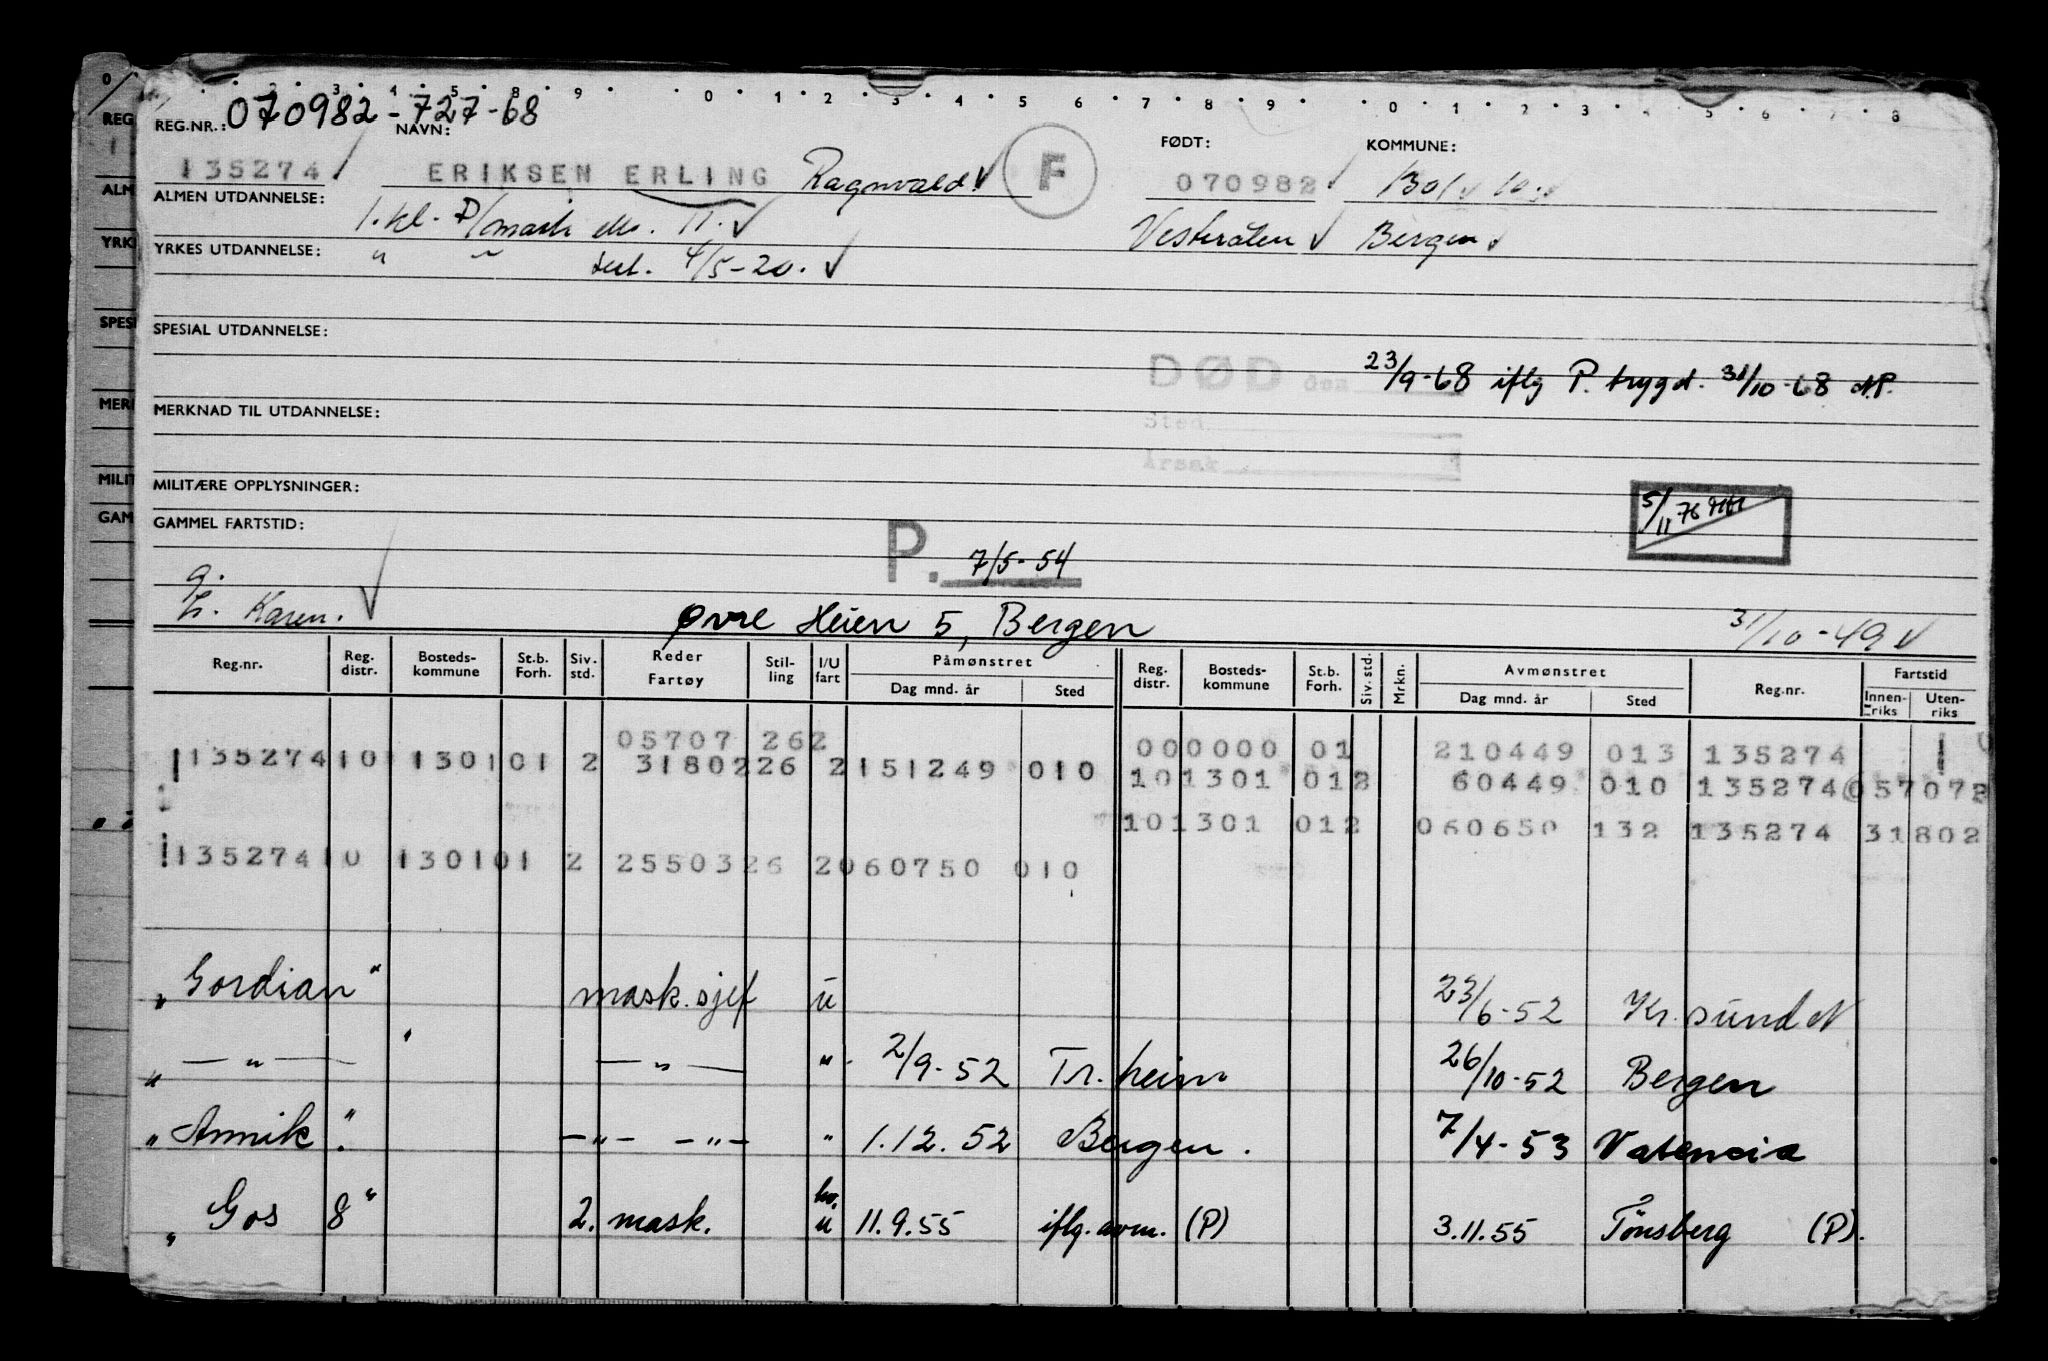 0 2 3 4 5 8 9 0 1 2 3 4 5 6 7 8 9 0 1 2 3 4 5 6 7 8
REG.NR.: 070982-727-68 NAVN: FØDT: KOMMUNE:
135274 ERIKSEN ERLING Ragnvald F 070982 1301 10
ALMEN UTDANNELSE: 1. kl. 11. Vesterålen Bergen
YRKES UTDANNELSE: " " 4/5-20.
SPESIAL UTDANNELSE:
DØD den 23/9-68 iflg P. trygd. 31/10-68 N.P.
MERKNAD TIL UTDANNELSE:
Sted
Årsak
MILITÆRE OPPLYSNINGER:
5/11 76
GAMMEL FARTSTID:
P. 7/5-54
g.
h. Karen.
Øvre Heien 5, Bergen 31/10-49
Reg.nr. Reg. distr. Bosteds-kommune St.b. Forh. Siv. std. Reder Fartøy Stil-ling I/U fart Påmønstret Dag mnd. år Sted Reg. distr. Bosteds-kommune St.b. Forh. Siv. std. Mrkn. Avmønstret Dag mnd. år Sted Reg.nr. Fartstid Innen-riks Uten-riks
05707 262 000000 01 210449 013 135274
135274 10 1301 01 2 31802 26 2 151249 010 10 1301 01 2 60449 010 135274 05707 2
10 1301 01 2 060650 132 135274 31802
135274 10 1301 01 2 25503 26 2 060750 010
„Gordian" mask.sjef u 23/6-52 Kr.sund N
„ —"— —"— " 2/9-52 Tr.heim 26/10-52 Bergen
„Annik" —"— —"— " 1.12.52 Bergen. 7/4-53 Valencia
„Gos 8" 2. mask. hv. u 11.9.55 iflg. avm. (P) 3.11.55 Tönsberg (P).